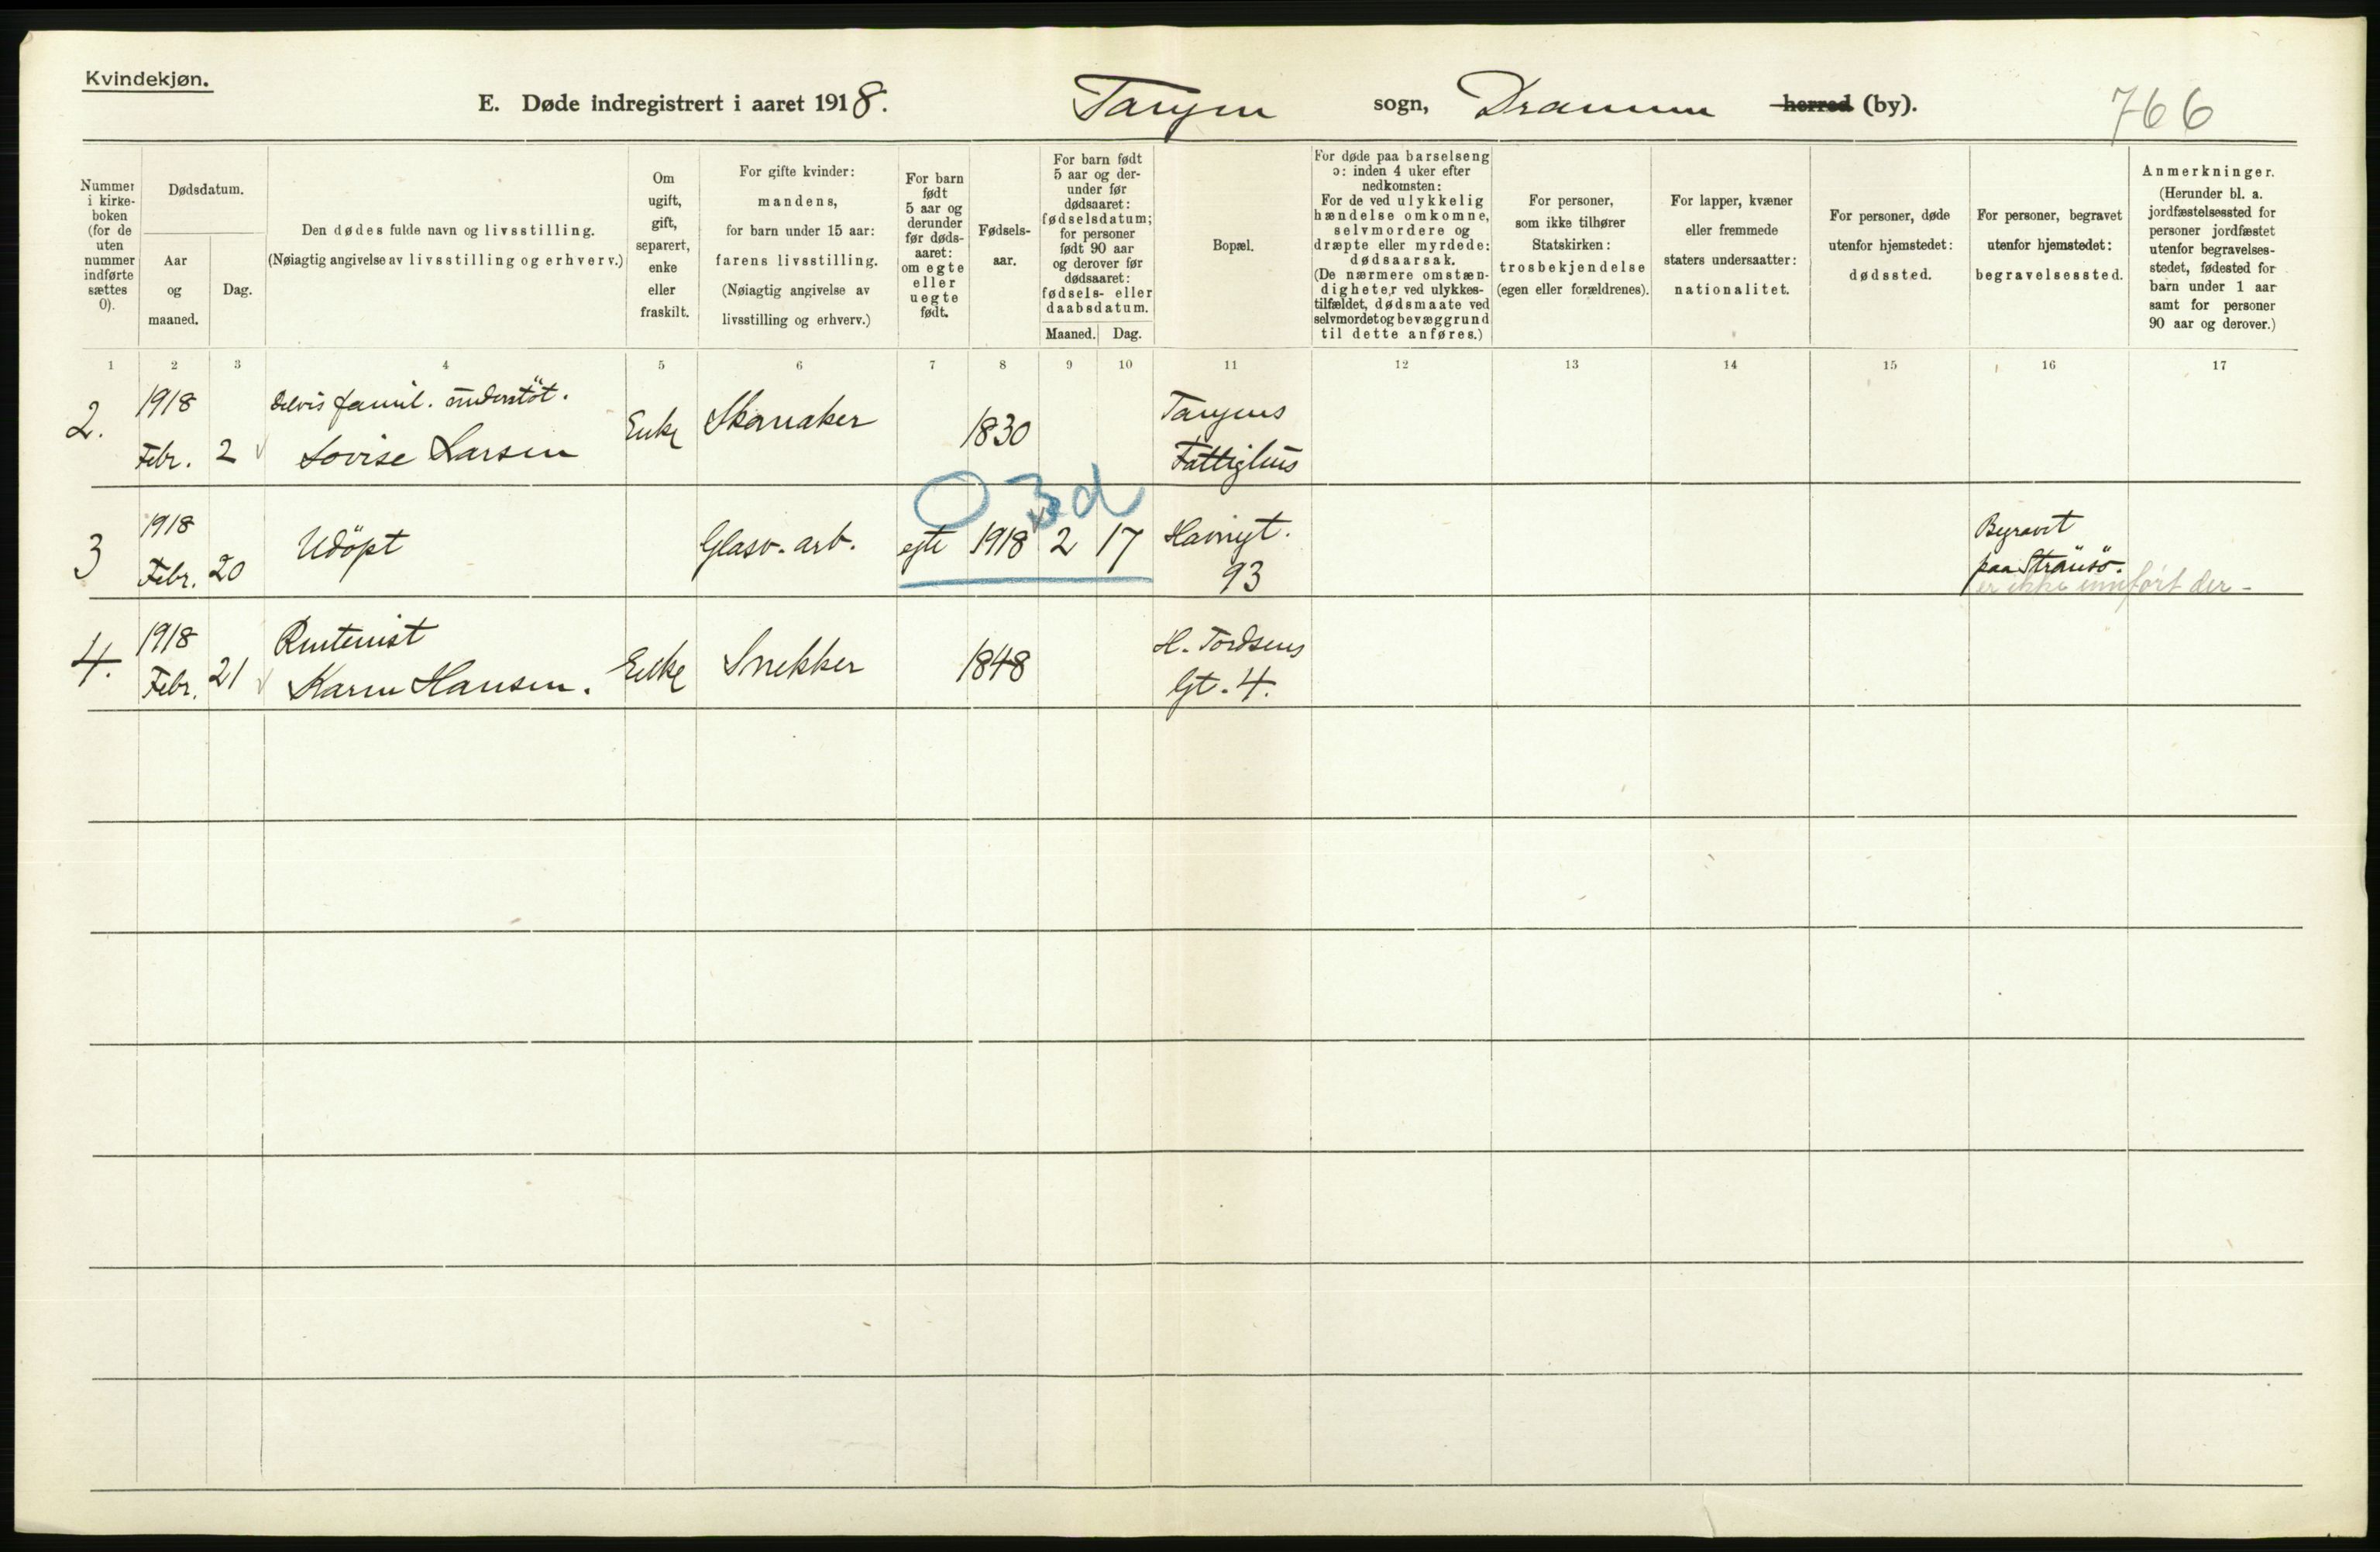 Kvindekjøn.
E. Døde indregistrert i aaret 1918. Tangen sogn, Drammen herred (by).
766
Nummer
i kirke-
boken
(for de
uten
nummer
indførte
sættes
0).
Dødsdatum.
Aar
og
maaned.
Dag.
Den dødes fulde navn og livsstilling.
(Nøiagtig angivelse av livsstilling og erhverv.)
Om
ugift,
gift,
separert,
enke
eller
fraskilt.
For gifte kvinder:
mandens,
for barn under 15 aar:
farens livsstilling.
(Nøiagtig angivelse av
livsstilling og erhverv.)
For barn
født
5 aar og
derunder
før døds-
aaret:
om egte
eller
uegte
født.
Fødsels-
aar.
For barn født
5 aar og der-
under før
dødsaaret:
fødselsdatum;
for personer
født 90 aar
og derover før
dødsaaret:
fødsels- eller
daabsdatum.
Maaned. Dag.
Bopæl.
For døde paa barselseng
ɔ: inden 4 uker efter
nedkomsten:
For de ved ulykkelig
hændelse omkomne,
selvmordere og
dræpte eller myrdede:
dødsaarsak.
(De nærmere omstæn-
digheter ved ulykkes-
tilfældet, dødsmaate ved
selvmordet og bevæggrund
til dette anføres.)
For personer,
som ikke tilhører
Statskirken:
trosbekjendelse
(egen eller forældrenes).
For lapper, kvæner
eller fremmede
staters undersaatter:
nationalitet.
For personer, døde
utenfor hjemstedet:
dødssted.
For personer, begravet
utenfor hjemstedet:
begravelsessted.
Anmerkninger.
(Herunder bl. a.
jordfæstelsessted for
personer jordfæstet
utenfor begravelses-
stedet, fødested for
barn under 1 aar
samt for personer
90 aar og derover.)
1 2 3 4 5 6 7 8 9 10 11 12 13 14 15 16 17
2. 1918 Febr. 2
delvis famil. understöt.
Lovise Larsen
Enke Skomaker 1830
Tangens
Fattighus
O 3 d
3 1918 Febr. 20 Udöpt Glasv. arb. egte 1918 2 17
Havnegt.
93
Begravet
paa Strömsö.
er ikke innført der -
4. 1918 Febr. 21
Rentenist
Karen Hansen.
Enke Snekker 1848
H. Tordsens
Gt. 4.